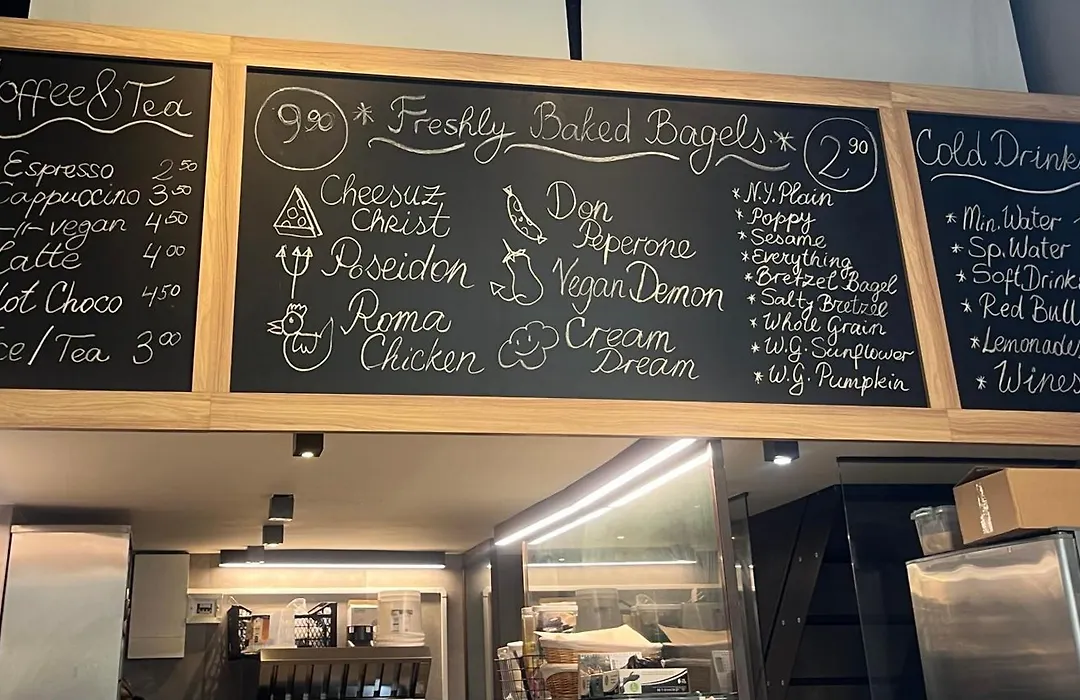 Coffee & Tea
Espresso 2.50
Cappuccino 3.50
-11- vegan 4.50
Latte 4.00
Hot Choco 4.50
Ice/Tea 3.00
9.90
* Freshly Baked Bagels *
2.90
Cheesuz
Christ
Poseidon
Roma
Chicken
Don
Peperone
Vegan Demon
Cream
Dream
* N.Y. Plain
* Poppy
* Sesame
* Everything
* Bretzel Bagel
* Salty Bretzel
* Whole Grain
* W.G. Sunflower
* W.G. Pumpkin
Cold Drink
* Min. Water
* Sp. Water
* Soft Drink
* Red Bull
* Lemonades
* Wines